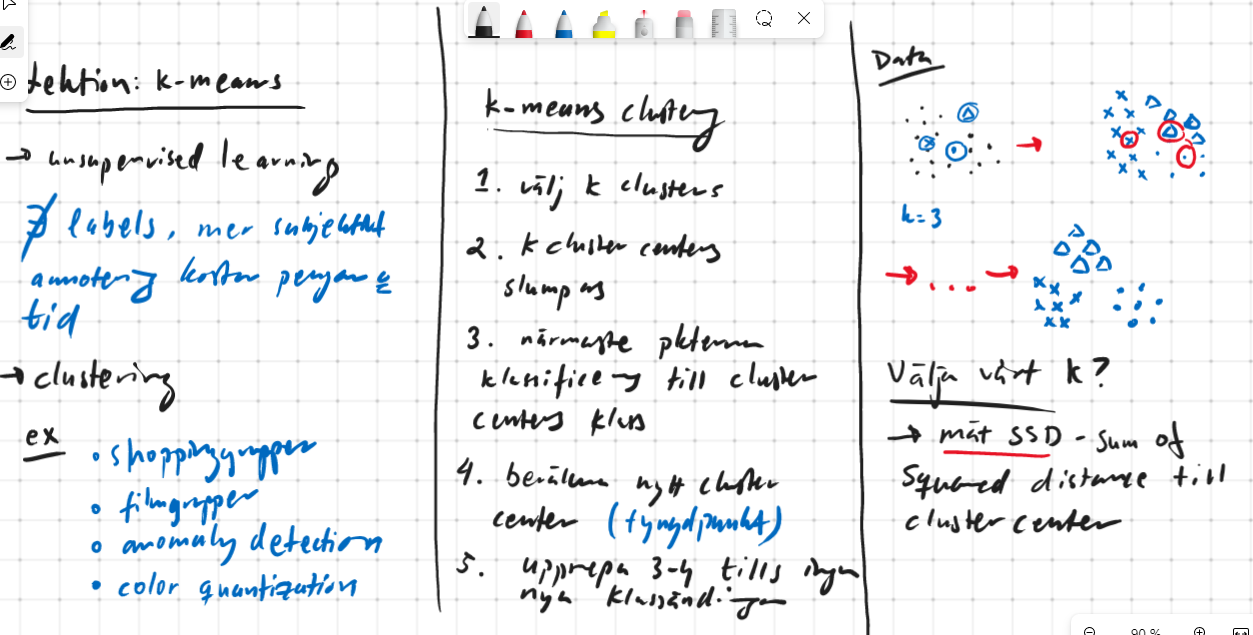 lektion: k-means
→ unsupervised learning
∄ labels, mer subjektivt
annotering kostar pengar &
tid
→ clustering
ex
• shoppinggrupper
• filmgrupper
• anomaly detection
• color quantization
k-means clustering
1. välj k clusters
2. k cluster centers
slumpas
3. närmaste pkterna
klassificeras till cluster
centers klass
4. beräkna nytt cluster
center (tyngdpunkt)
5. upprepa 3-4 tills inga
nya klassändringar
Data
k=3
Välja vårt k?
→ mät SSD - sum of
squared distance till
cluster center
90 %